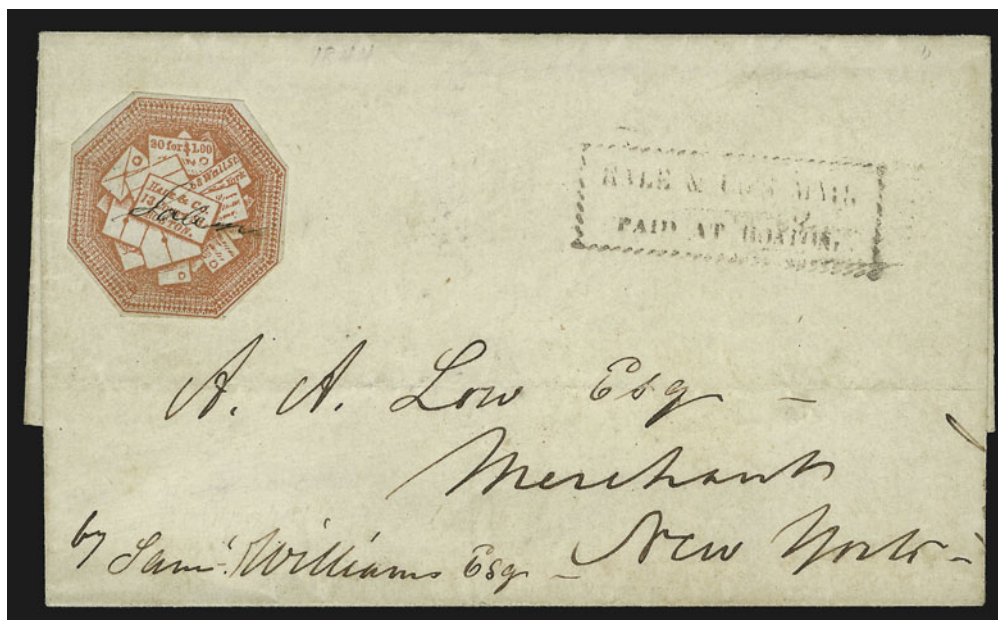 1844
20 for $1.00
68 Wall St.
York
HALE & CO.
13
BOSTON.
Salem
HALE & CO.'S MAIL
PAID AT BOSTON.
A. A. Low Esq –
Merchant
New York –
by Saml. Williams Esq –